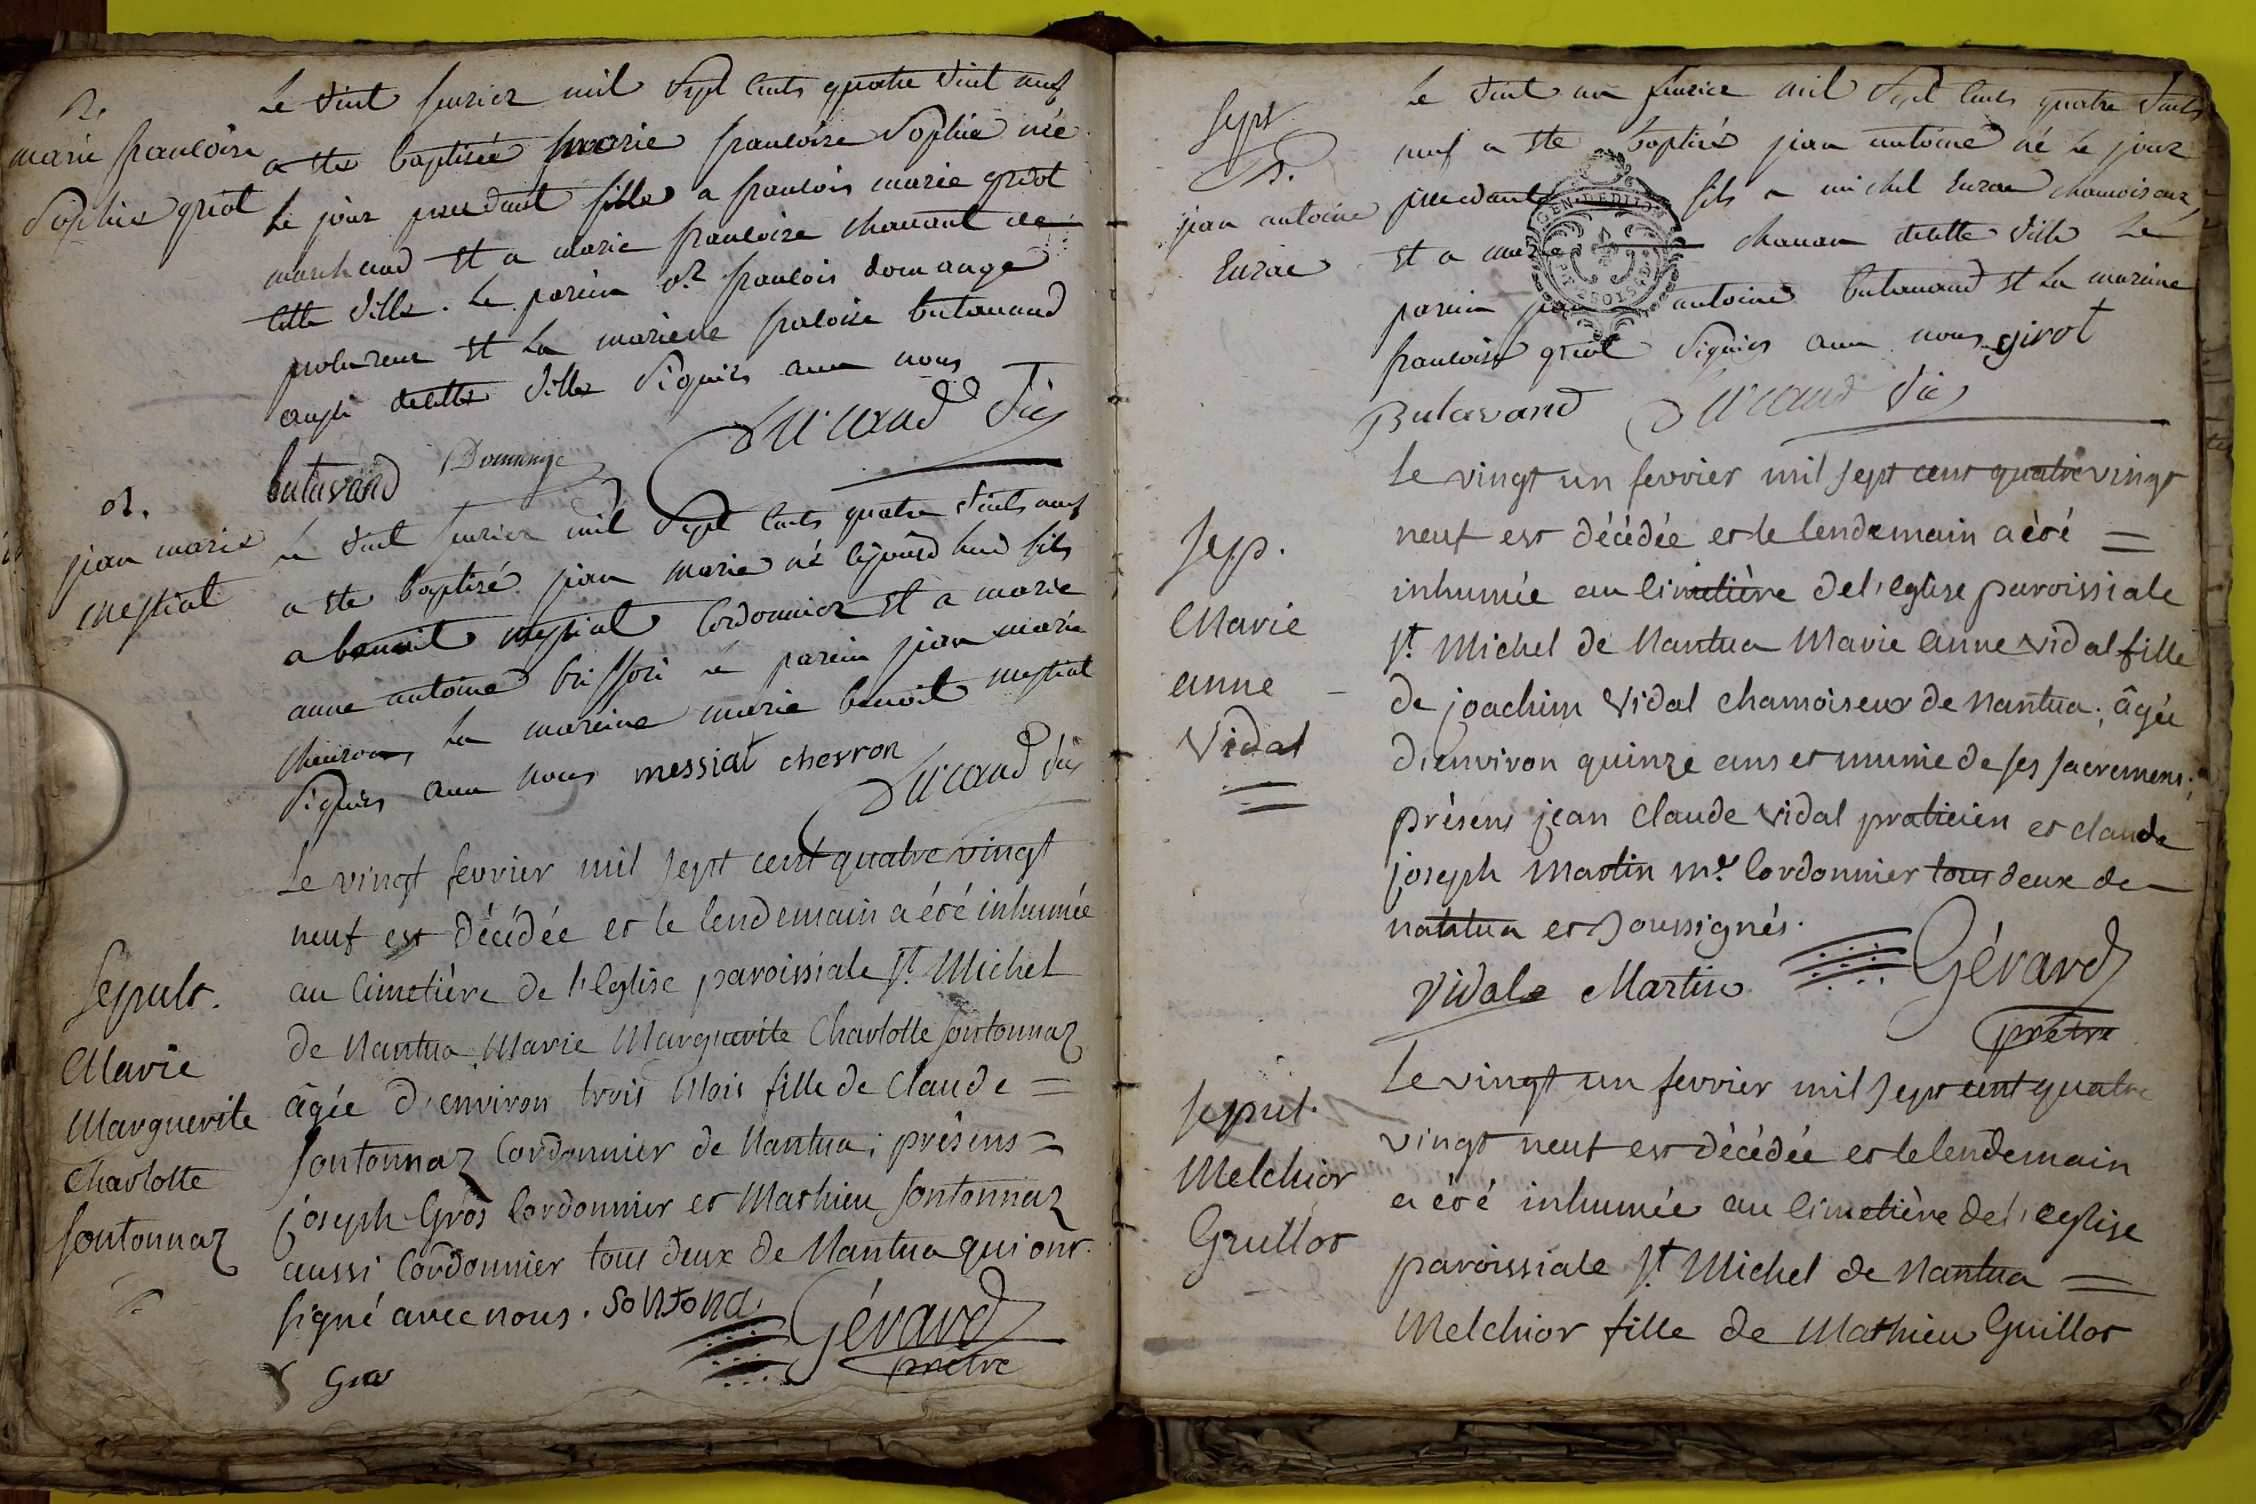 B.
marie francoise
Sophie griot
Le vint fevrier mil sept cents quatre vint neuf
a ete baptisée marie francoise Sophie née
le jour precedant fille a francois marie griot
marchand et a marie francoise chanant de
cette ville. Le parein sr francois domange
procureur et La mareine francoise butavand
aussi de cette ville signies avec nous
butavand Domange vic
B.
jean marie
messiat
Le vint fevrier mil sept cents quatre vints neuf
a ete baptisé jean marie né aujourd hui fils
a benoit messiat Cordonnier et a marie
anne antoine le parein jean marie
chevron La mareine marie benoit messiat
signies avec nous messiat chevron
vic
Sepult.
Marie
Marguerite
Charlotte
sontonnaz
Le vingt fevrier mil sept cent quatre vingt
neuf est décédée et le lendemain a été inhumée
au Cimetière de l'eglise paroissiale St. Michel
de Nantua Marie Marguerite Charlotte sontonnaz
âgée d'environ trois Mois fille de Claude =
sontonnaz Cordonnier de Nantua; présens =
joseph Gros Cordonnier et Mathieu sontonnaz
aussi Cordonnier tous deux de Nantua qui ont
signé avec nous. Sontona Gérard
prêtre
Gros
sept
B.
jean antoine
Le vint un fevrier mil sept cents quatre vints
neuf a ete baptisé jean antoine né le jour
precedant fils a michel chamoiseur
et a marie chanan de cette ville Le
parein jean antoine butavand et La mareine
francoise griot signies avec nous girot
Butavand vic
Sep.
Marie
anne
Vidal
Le vingt un fevrier mil sept cent quatre vingt
neuf est décédée et le lendemain a été =
inhumée au Cimetière de l'eglise paroissiale
St. Michel de Nantua Marie anne Vidal fille
de joachim Vidal chamoiseur de Nantua; âgée
d'environ quinze ans et munie de ses sacremens;
présens jean Claude Vidal praticien et claude
joseph Martin me. Cordonnier tous deux de
nantua et soussignés.
Vidal Martin Gérard
prêtre
Sepul.
Melchior
Guillot
Le vingt un fevrier mil sept cent quatre
vingt neuf est décédée et le lendemain
a été inhumée au Cimetière de l'eglise
paroissiale St. Michel de Nantua =
Melchior fille de Mathieu Guillot